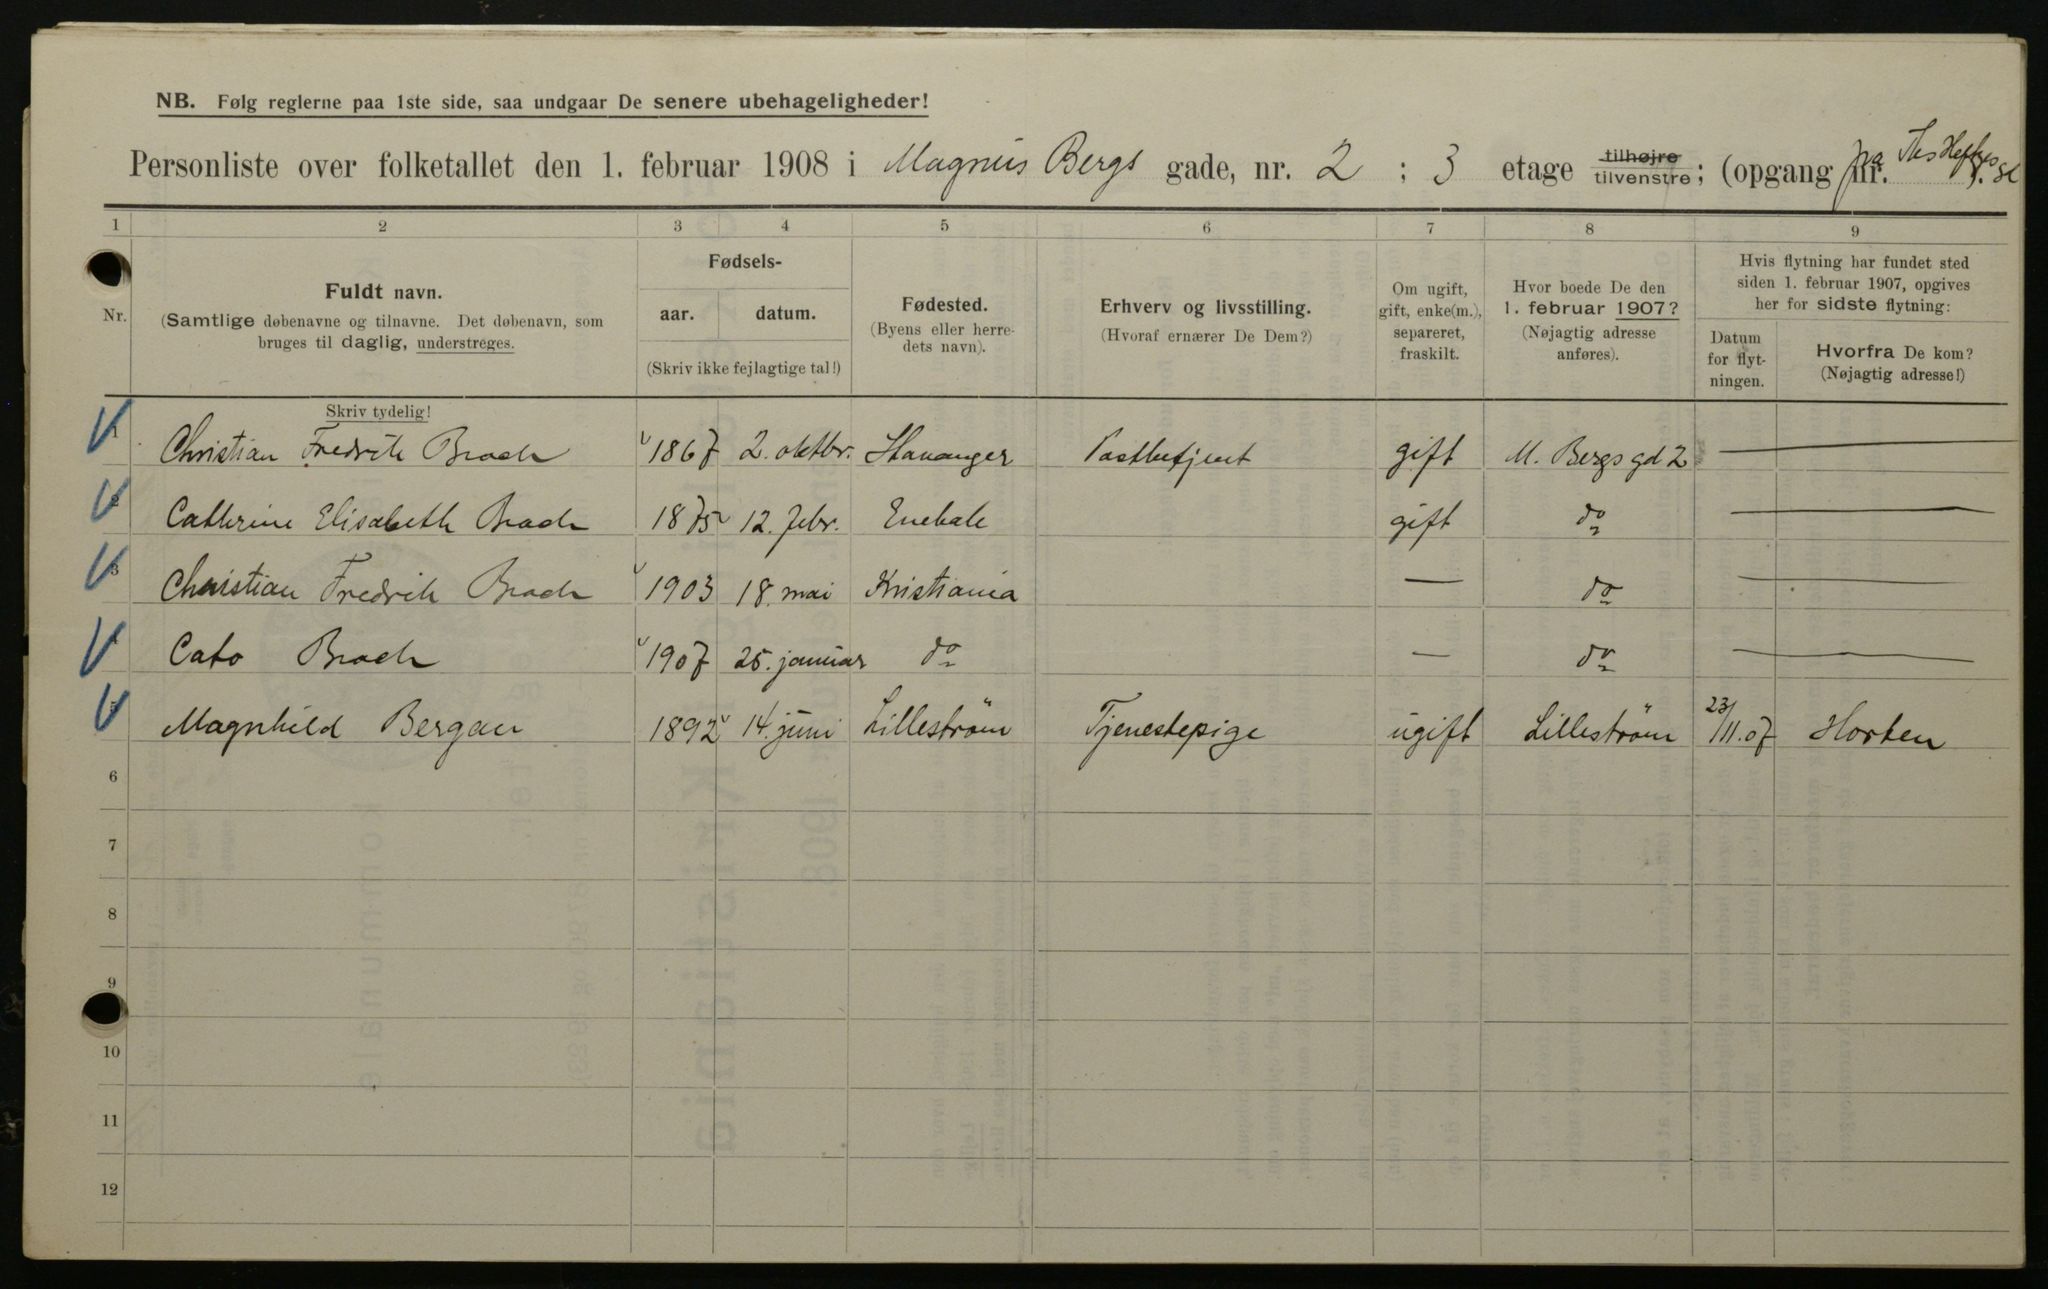 NB. Følg reglerne paa 1ste side, saa undgaar De senere ubehageligheder!
Personliste over folketallet den 1. februar 1908 i Magnus Bergs gade, nr. 2 ; 3 etage tilhøjre tilvenstre ; (opgang nr. ).
1 2 3 4 5 6 7 8 9
Nr.
Fuldt navn.
(Samtlige døbenavne og tilnavne. Det døbenavn, som
bruges til daglig, understreges.
Skriv tydelig!
Fødsels-
aar. datum.
(Skriv ikke fejlagtige tal!)
Fødested.
(Byens eller herre-
dets navn).
Erhverv og livsstilling.
(Hvoraf ernærer De Dem?)
Om ugift,
gift, enke(m.),
separeret,
fraskilt.
Hvor boede De den
1. februar 1907?
(Nøjagtig adresse
anføres).
Hvis flytning har fundet sted
siden 1. februar 1907, opgives
her for sidste flytning:
Datum
for flyt-
ningen.
Hvorfra De kom?
(Nøjagtig adresse!)
1 Christian Fredrik Broch 1867 2. oktbr. Stavanger Postbetjent gift M. Bergs gd 2 —
2 Cathrine Elisabeth Broch 1875 12. febr. Enebak gift do —
3 Christian Fredrik Broch 1903 18. mai Kristiania — do —
4 Cato Broch 1907 25. januar do — do —
5 Magnhild Bergan 1892 14. juni Lillestrøm Tjenestepige ugift Lillestrøm 23/11.07 Horten
6
7
8
9
10
11
12